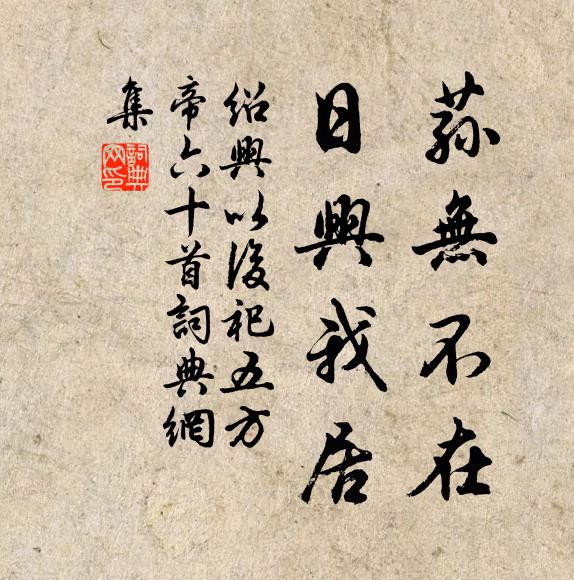 荪無不在
日興我居
紹興以後祀五方
帝六十首詞典網
集
詞典
网印